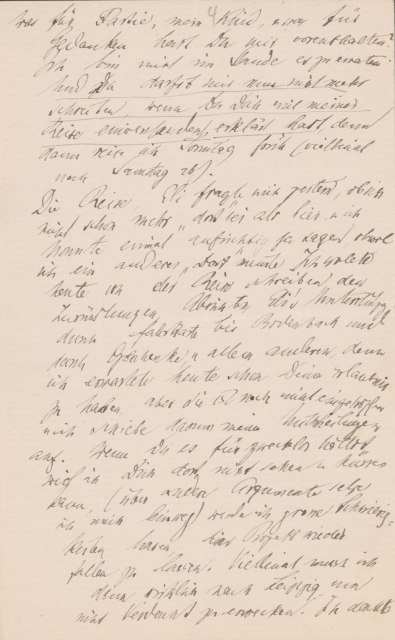 was für Partie, mein Kind, was für
Gedanken hast Du mir vorenthalten?
Ich bin nicht im Stande es zu erraten.
Und Du darfst mir nun nicht mehr
schreiben, wenn Du Dich mit meiner
Reise einverstanden erklärt hast, denn
dann reise ich Sonntag früh (vielleicht
noch Samstag ab).
Die Reise, Eli fragte mich gestern, ob ich
nicht schon mehr "dort" sei als hier, u. ich
konnte einmal aufrichtig ja sagen obwol
ich ein anderes "Dort" meinte. Ich wollte
heute von der Reise schreiben, den
Zurüstungen, Eli's Unterstützg
durch Fahrkarte bis Bodenbach und
durch Geschenke u allem anderen, denn
ich erwartete heute schon Deine Erlaubnis
zu haben, aber sie ist noch nicht eingetroffen
u ich schiebe darum meine Mittheilungen
auf. Wenn Du es für zwecklos hältst
weil ich Dich doch nicht sehen u küssen
kann, (über andere Argumente setze
ich mich hinweg) werde ich grosse Schwierig-
keiten haben das Projekt wieder
fallen zu lassen. Vielleicht muss ich
dann wirklich nach Leipzig um
nicht Verdacht zu erwecken. Ich dachte